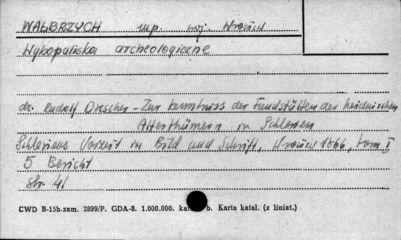 WAŁBRZYCH mp. woj. Wrocław
Wykopaliska archeologiczne
dr. Rudolf Drescher - Zur Kenntniss der Fundstätten der heidnischen
Alterthümern in Schlesien
Schlesiens Vorzeit in Bild und Schrift, Wrocław 1866, tom I
5 Bericht
Str. 41
CWD B-15b.zam. 2899/P. GDA-8. 1.000.000. b. Karta katal. (z liniat.)